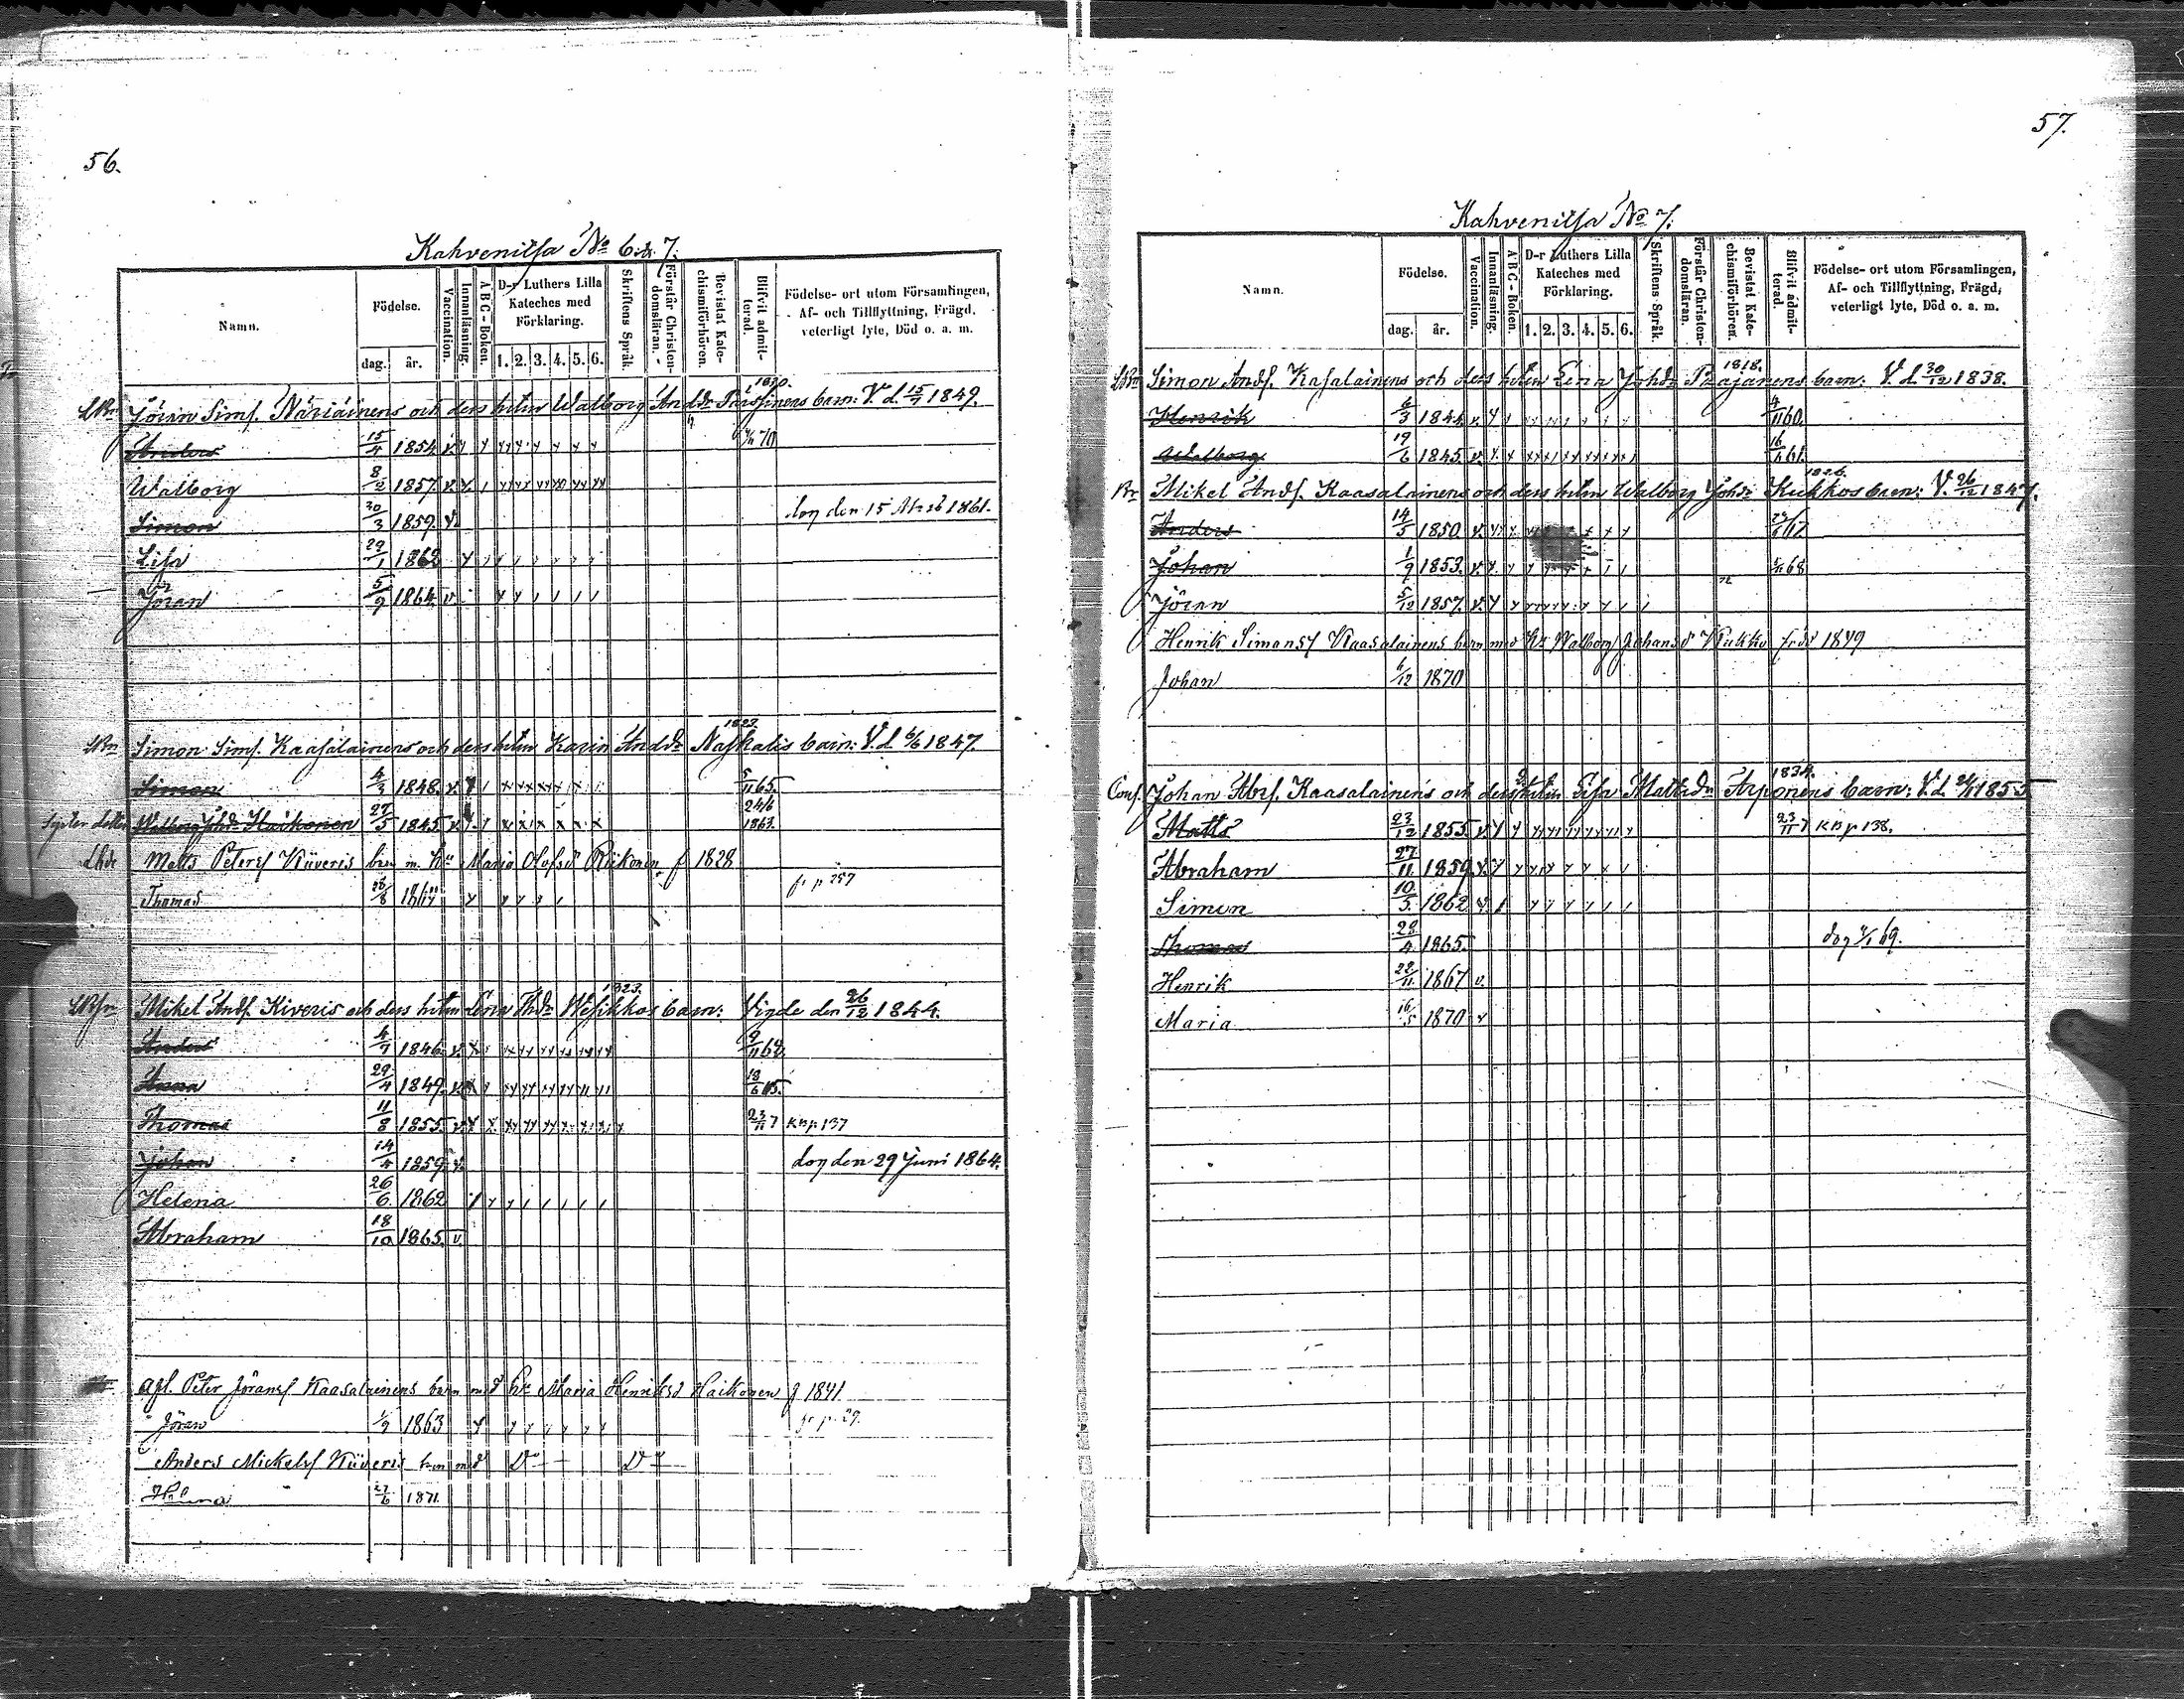 56.
Kahvenitsa No 6. & 7.
Namn.
Födelse.
dag.
år.
Vaccination.
Innanläsning.
A B C - Boken.
D-r Luthers Lilla
Kateches med
Förklaring.
1. 2. 3. 4. 5. 6.
Skriftens Språk.
Förstår Christen-
domsläran.
Bevistat Kate-
chismiförhören.
Blifvit admit-
terad.
Födelse- ort utom Församlingen,
Af- och Tillflyttning, Frägd,
veterligt lyte, Död o. a. m.
Jöran Sims. Näriäinens och ders hstru Walborg And:dr Parssinens barn: V. d. 15/7 1849.
Anders 15/4 1854. v.
Walborg 8/2 1857. v.
Simon 30/3 1859. v. dog den 15 1861.
Lisa 29/1 1862
Jöran 5/9 1864. v.
1823.
Simon Sims. Kaasalainens och ders hstru Karin And:dr Naskalis barn: V. d. 6/6 1847.
Simon 4/3 1848. v. 5/11 65.
Walborg Joh:dr Haikonen 27/5 1845. v. 24/6 1863.
Matts Peters Kiiveris barn m. h:u Maria Olofsd Riikonen f 1828
Thomas 26/8 fr p 257
1823.
Mikel And. Kiveris och ders hstru Lena Th:dr Wesikkos barn: Vigde den 26/12 1844.
Anders 4/7 1846. v. 9/11 62.
Anna 29/4 1849. v. 18/6 65.
Thomas 11/8 1855. v. 23/11 7 KB p 137
Johan 14/4 1859. v. dog den 29 Juni 1864.
Helena 26/6 1862
Abraham 18/10 1865. v.
afl. Peter Jörans Kaasalainens barn med h:u Maria Henriksd Haikonen f 1841.
Jöran 1/9 1863 fr p. 29.
Anders Mickels Kiiveris barn med D:o D:o
Helena 27/6 1871.
57.
Kahvenitsa No 7.
Namn.
Födelse.
dag.
år.
Vaccination.
Innanläsning.
A B C - Boken.
D-r Luthers Lilla
Kateches med
Förklaring.
1. 2. 3. 4. 5. 6.
Skriftens Språk.
Förstår Christen-
domsläran.
Bevistat Kate-
chismiförhören.
Blifvit admit-
terad.
Födelse- ort utom Församlingen,
Af- och Tillflyttning, Frägd,
veterligt lyte, Död o. a. m.
1818.
Simon Ands. Kasalainens och ders hstru Lena Joh:dr Pajanens barn: V. d. 30/12 1838.
Henrik 6/3 1844. v. 4/11 60.
Walborg 19/6 1845. v. 16/6 61.
1826.
Mikel Ands. Kaasalainens och ders hstru Walborg Joh:dr Kukkos barn: V. 26/12 1847.
Anders 14/5 1850. v.
Johan 1/9 1853. v. 68
Jöran 5/12 1857. v.
Henrik Simons Kaasalainens barn med h:u Walborg Johansd Kukko född 1849
Johan 6/12 1870
1834.
Johan Abrs. Kaasalainens och ders hstru Lisa Matts:dr Arponens barn: V. d. 1855
Matts 23/12 1855. v. 23/11 7 KB p 138.
Abraham 27/11 1859. v.
Simon 10/5 1862. v.
Thomas 28/4 1865. dog 69.
Henrik 22/11 1867 v.
Maria 16/5 1870 v